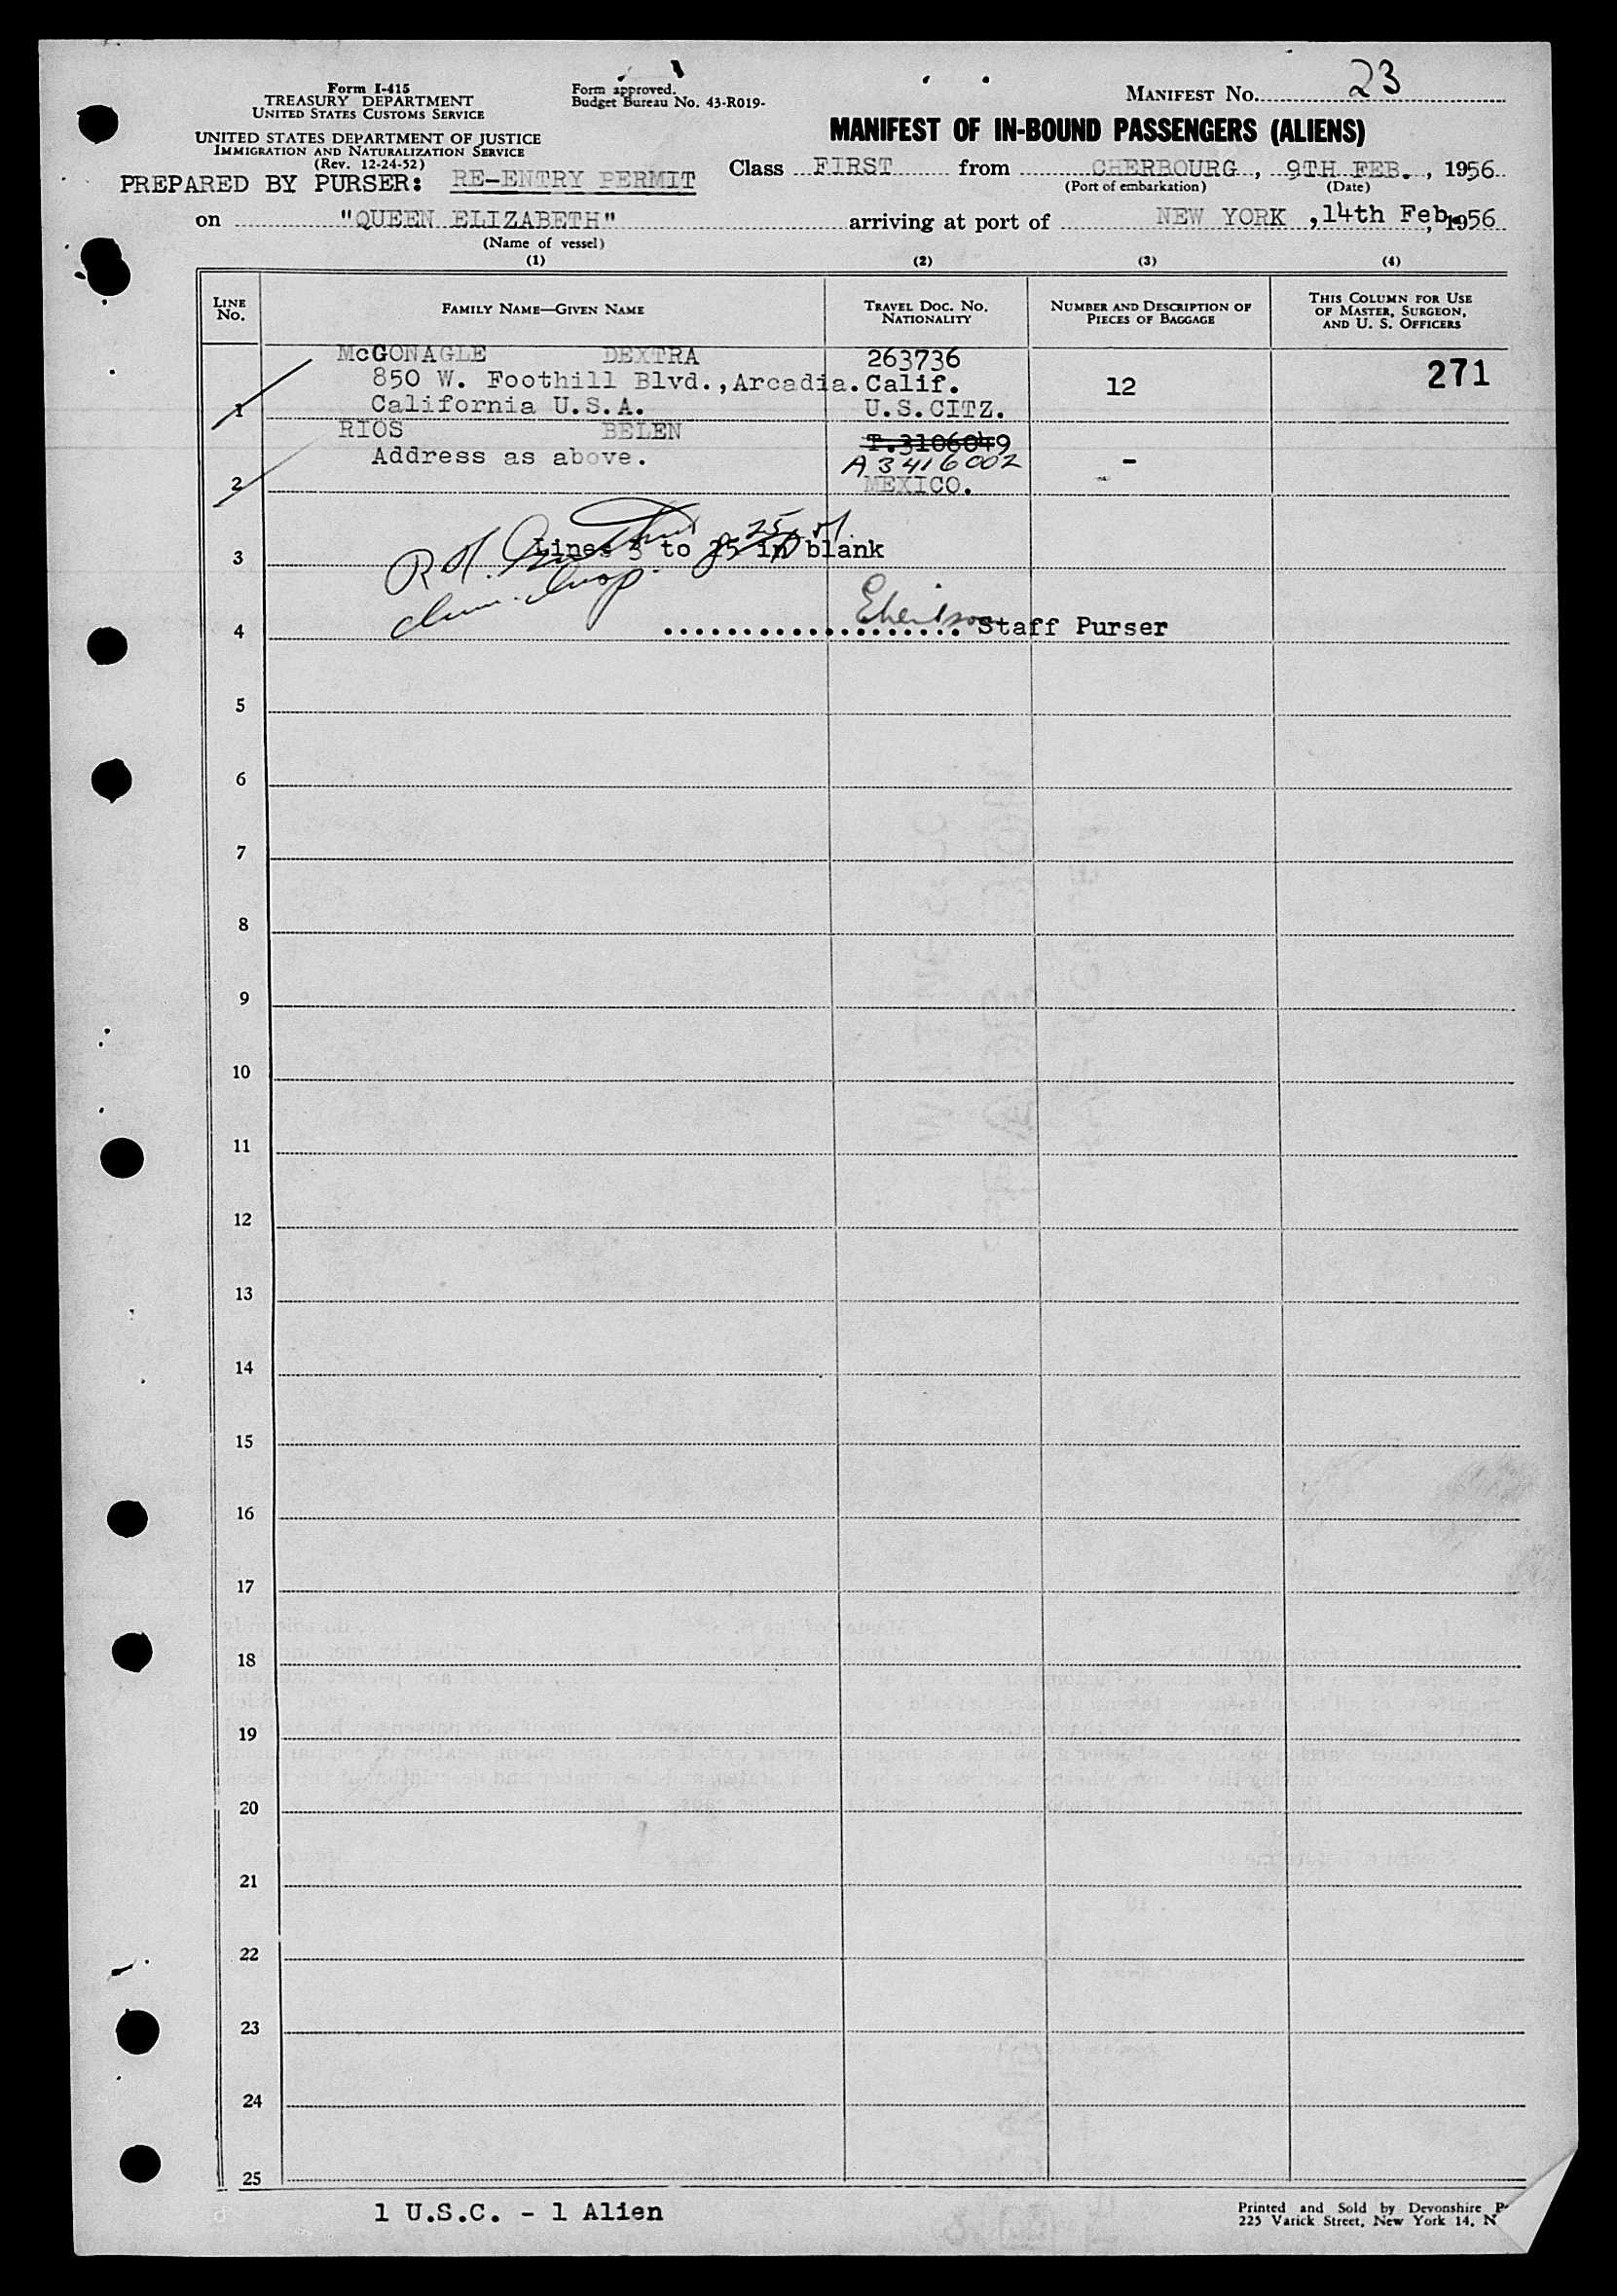 Form I-415
TREASURY DEPARTMENT
UNITED STATES CUSTOMS SERVICE
UNITED STATES DEPARTMENT OF JUSTICE
IMMIGRATION AND NATURALIZATION SERVICE
(Rev. 12-24-52)
PREPARED BY PURSER: RE-ENTRY PERMIT
Form approved.
Budget Bureau No. 43-R019-
MANIFEST NO. 23
MANIFEST OF IN-BOUND PASSENGERS (ALIENS)
Class FIRST from CHERBOURG, 9TH FEB., 1956
(Port of embarkation) (Date)
on "QUEEN ELIZABETH" arriving at port of NEW YORK ,14th Feb, 1956
(Name of vessel)
(1) (2) (3) (4)
LINE NO. FAMILY NAME—GIVEN NAME TRAVEL DOC. NO. NATIONALITY NUMBER AND DESCRIPTION OF PIECES OF BAGGAGE THIS COLUMN FOR USE OF MASTER, SURGEON, AND U. S. OFFICERS
McGONAGLE DEXTRA 263736 271
850 W. Foothill Blvd.,Arcadia. Calif. 12
1 California U.S.A. U.S.CITZ.
RIOS BELEN T.3106049
Address as above. A3416002 -
2 MEXICO.
25
3 Lines 3 to 25 in blank
R.H.
4 .................... Staff Purser
5
6
7
8
9
10
11
12
13
14
15
16
17
18
19
20
21
22
23
24
25
1 U.S.C. - 1 Alien
Printed and Sold by Devonshire
225 Varick Street, New York 14, N